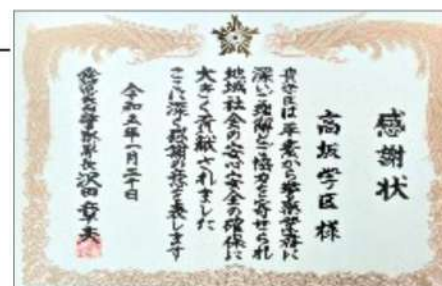 感謝状
高坂学区様
貴学区は平素から警察業務に
深い理解とご協力を寄せられ
地域社会の安心安全の確保に
大きく貢献されました
ここに深く感謝の意を表します
令和五年一月二十日
警察署長沢田章夫